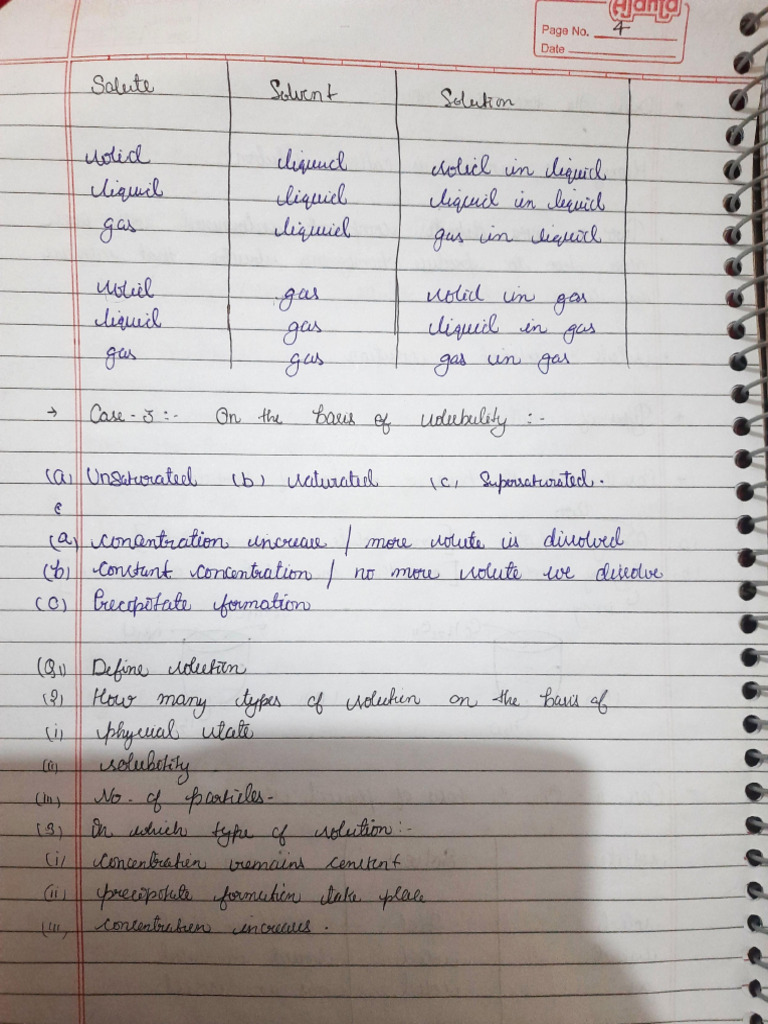 Ajanta
Page No. 4
Date
Solute Solvent Solution
solid liquid solid in liquid
liquid liquid liquid in liquid
gas liquid gas in liquid
solid gas solid in gas
liquid gas liquid in gas
gas gas gas in gas
→ Case-3:- On the basis of solubility :-
(a) Unsaturated (b) saturated (c) Supersaturated.
(a) concentration increase / more solute is dissolved
(b) constant concentration / no more solute we dissolve
(c) Precipotate formation
(Q1) Define solution
(2) How many types of solution on the basis of
(i) physical state
(ii) solubility
(iii) No. of particles-
(3) In which type of solution:-
(i) concentration remains constant
(ii) precipotate formation take place
(iii) concentration increases.